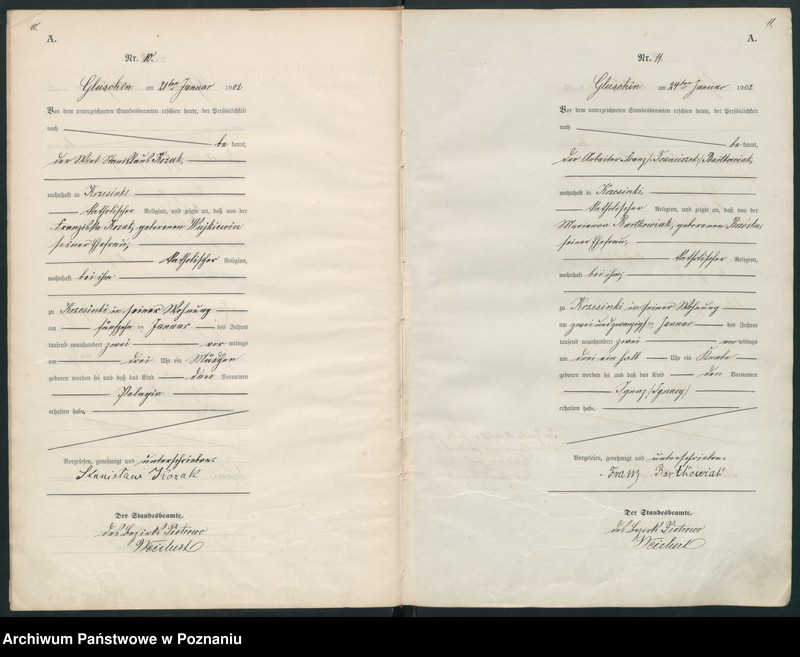 10.
A.
Nr. 10.
Gluschin am 21ten Januar 1902
Vor dem unterzeichneten Standesbeamten erschien heute, der Persönlichkeit
nach
be kannt,
der Wirt Stanislaus Kozak,
wohnhaft in Krzesinki
katholischer Religion, und zeigte an, daß von der
Franziska Kozak, geborenen Wojkiewicz
seiner Ehefrau,
katholischer Religion,
wohnhaft bei ihm
zu Krzesinki in seiner Wohnung
am fünfzehn ten Januar des Jahres
tausend neunhundert zwei vor mittags
um drei Uhr ein Mädchen
geboren worden sei und daß das Kind den Vornamen
Pelagia
erhalten habe.
Vorgelesen, genehmigt und unterschrieben.
Stanisław Kozak
Der Standesbeamte.
des Bezirks Piotrowo
Weichert
11.
A.
Nr. 11.
Gluschin am 24ten Januar 1902
Vor dem unterzeichneten Standesbeamten erschien heute, der Persönlichkeit
nach
be kannt,
der Arbeiter Franz /: Franciszek :/ Bartkowiak,
wohnhaft in Krzesinki,
katholischer Religion, und zeigte an, daß von der
Marianna Bartkowiak, geborenen
seiner Ehefrau,
katholischer Religion,
wohnhaft bei ihm,
zu Krzesinki in seiner Wohnung
am zwei und zwanzigsten Januar des Jahres
tausend neunhundert zwei vor mittags
um drei ein halb Uhr ein Knabe
geboren worden sei und daß das Kind den Vornamen
Ignaz /: Ignacy :/
erhalten habe.
Vorgelesen, genehmigt und unterschrieben.
Franz Bartkowiak
Der Standesbeamte.
des Bezirks Piotrowo
Weichert
Archiwum Państwowe w Poznaniu